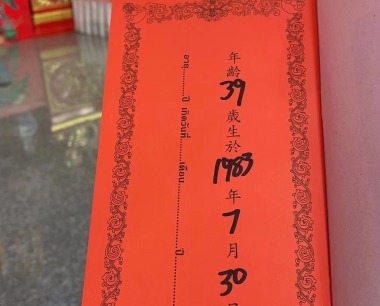 年齡39歲生於1983年7月30日
อายุ............ปี เกิดวันที่............เดือน............ปี............